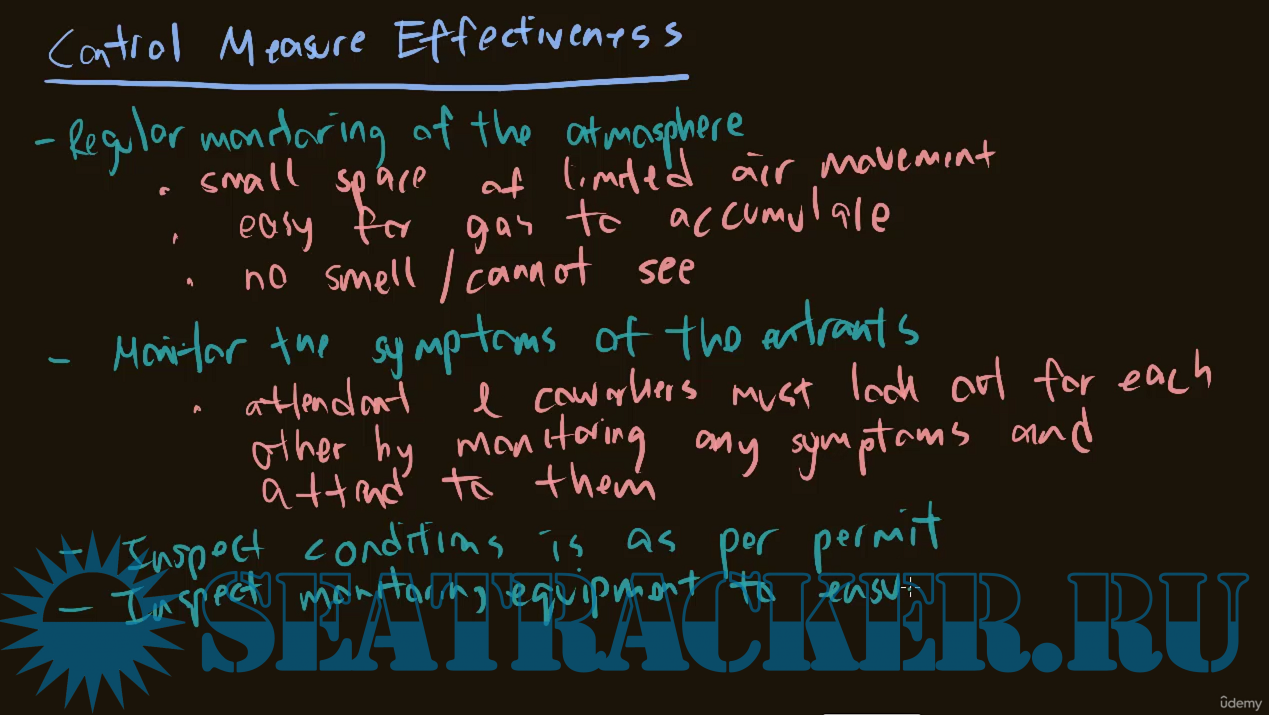 Control Measure Effectiveness
- Regular monitoring of the atmosphere
• small space of limited air movement
• easy for gas to accumulate
• no smell / cannot see
- Monitor the symptoms of the entrants
• attendant & coworkers must look out for each
other by monitoring any symptoms and
attend to them
- Inspect conditions is as per permit
- Inspect monitoring equipment to easu
SEATRACKER.RU
ûdemy